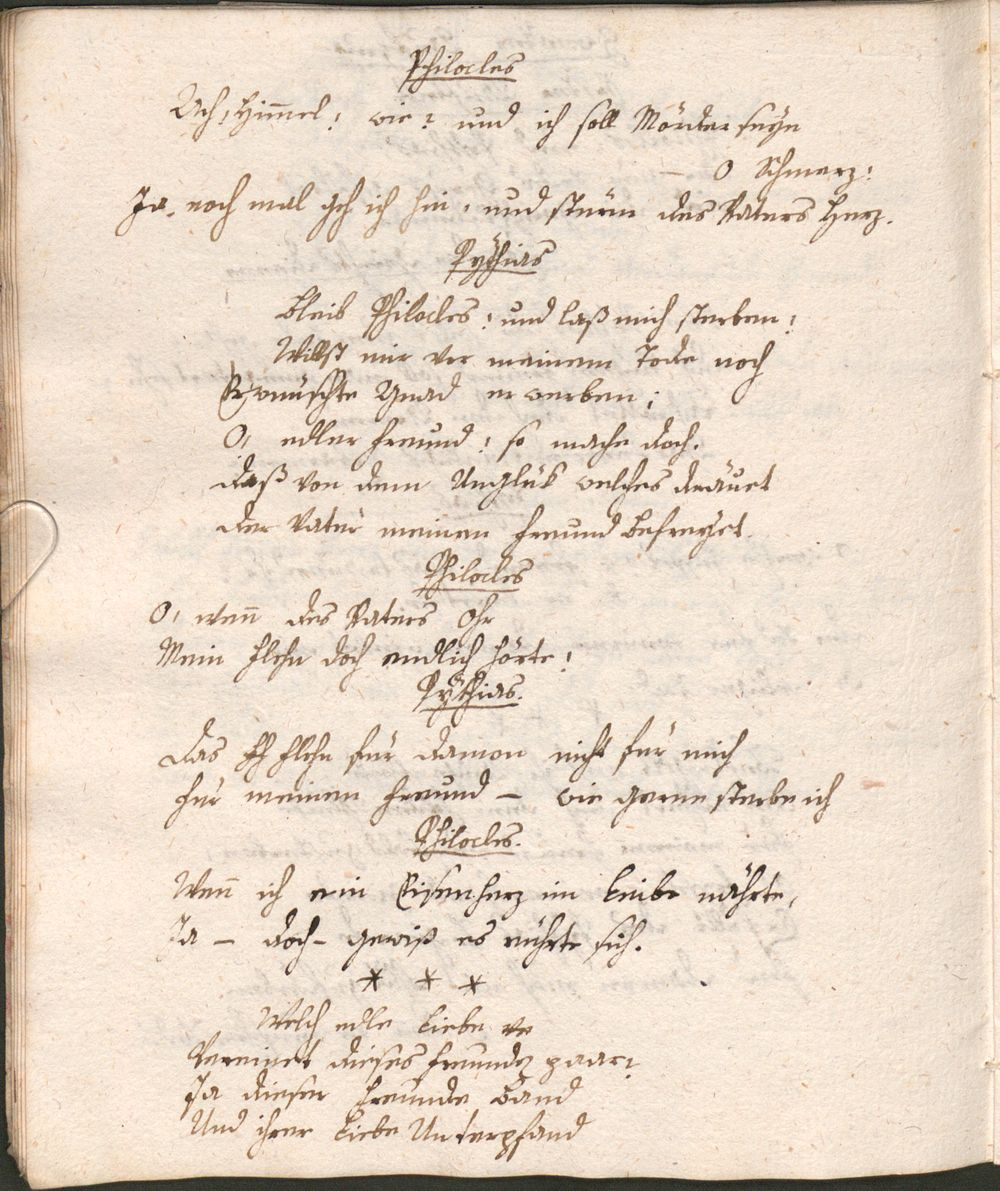 Philocles
Ach, Himmel! wie? und ich soll Mörder seyn
— O Schmerz!
Ja, noch mal geh ich hin, und stürm des Vaters Herz.
Pythias
Bleib Philocles! und laß mich sterben!
Willst mir vor meinem Tode noch
Erwünschte Gnad erwerben;
O, edler Freund! so mache doch,
daß von dem Unglük welches dräuet
der Vater meinen Freund befreyet.
Philocles
O, wenn̄ des Vaters Ohr
Mein Flehn doch endlich hörte!
Pythias.
Das Flehn für Damon nicht für mich
für meinen Freund — wie gerne sterbe ich
Philocles.
Wenn̄ ich ein Eisenherz im Leibe nährte,
Ja — doch — gewiß es rührte sich.
* * *
Welch edle Liebe ve
Vereinet dieses Freundes paar?
Ja dieser Freunde Band
Und ihrer Liebe Unterpfand